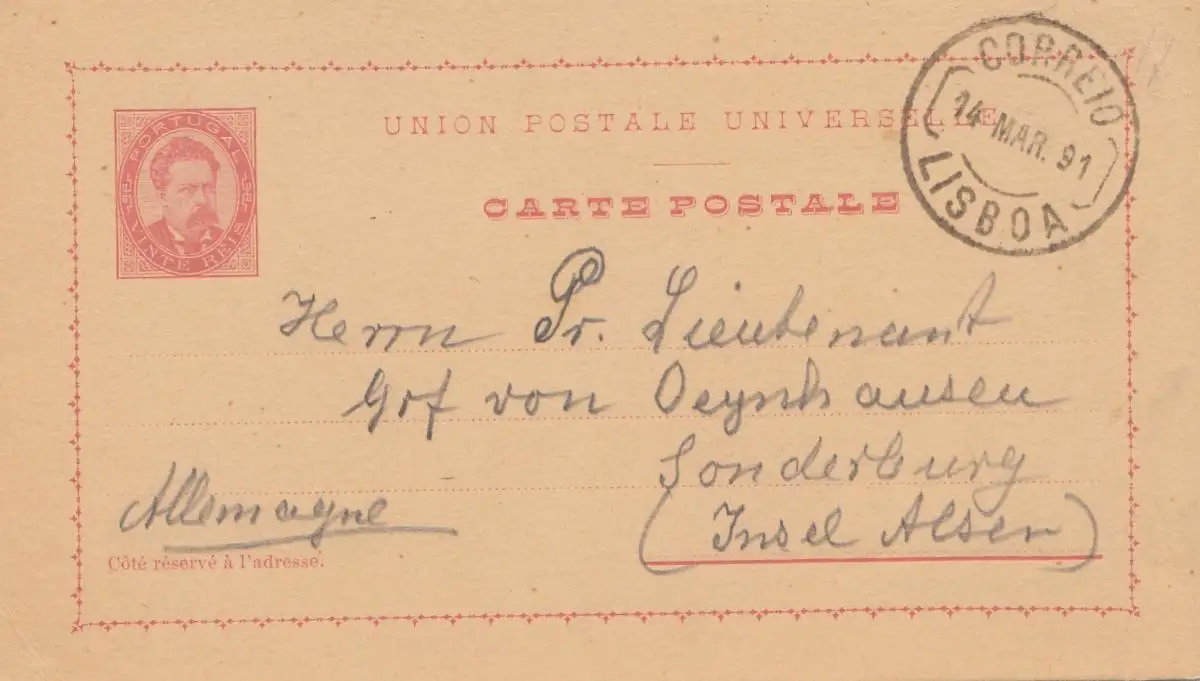 UNION POSTALE UNIVERSELLE
CARTE POSTALE
PORTUGAL
VINTE REIS
CORREIO
14 MAR. 91
LISBOA
Herrn Pr. Lieutenant
Grf von Oeynhausen
Sonderburg
(Insel Alsen)
Allemagne
Côté réservé à l'adresse.